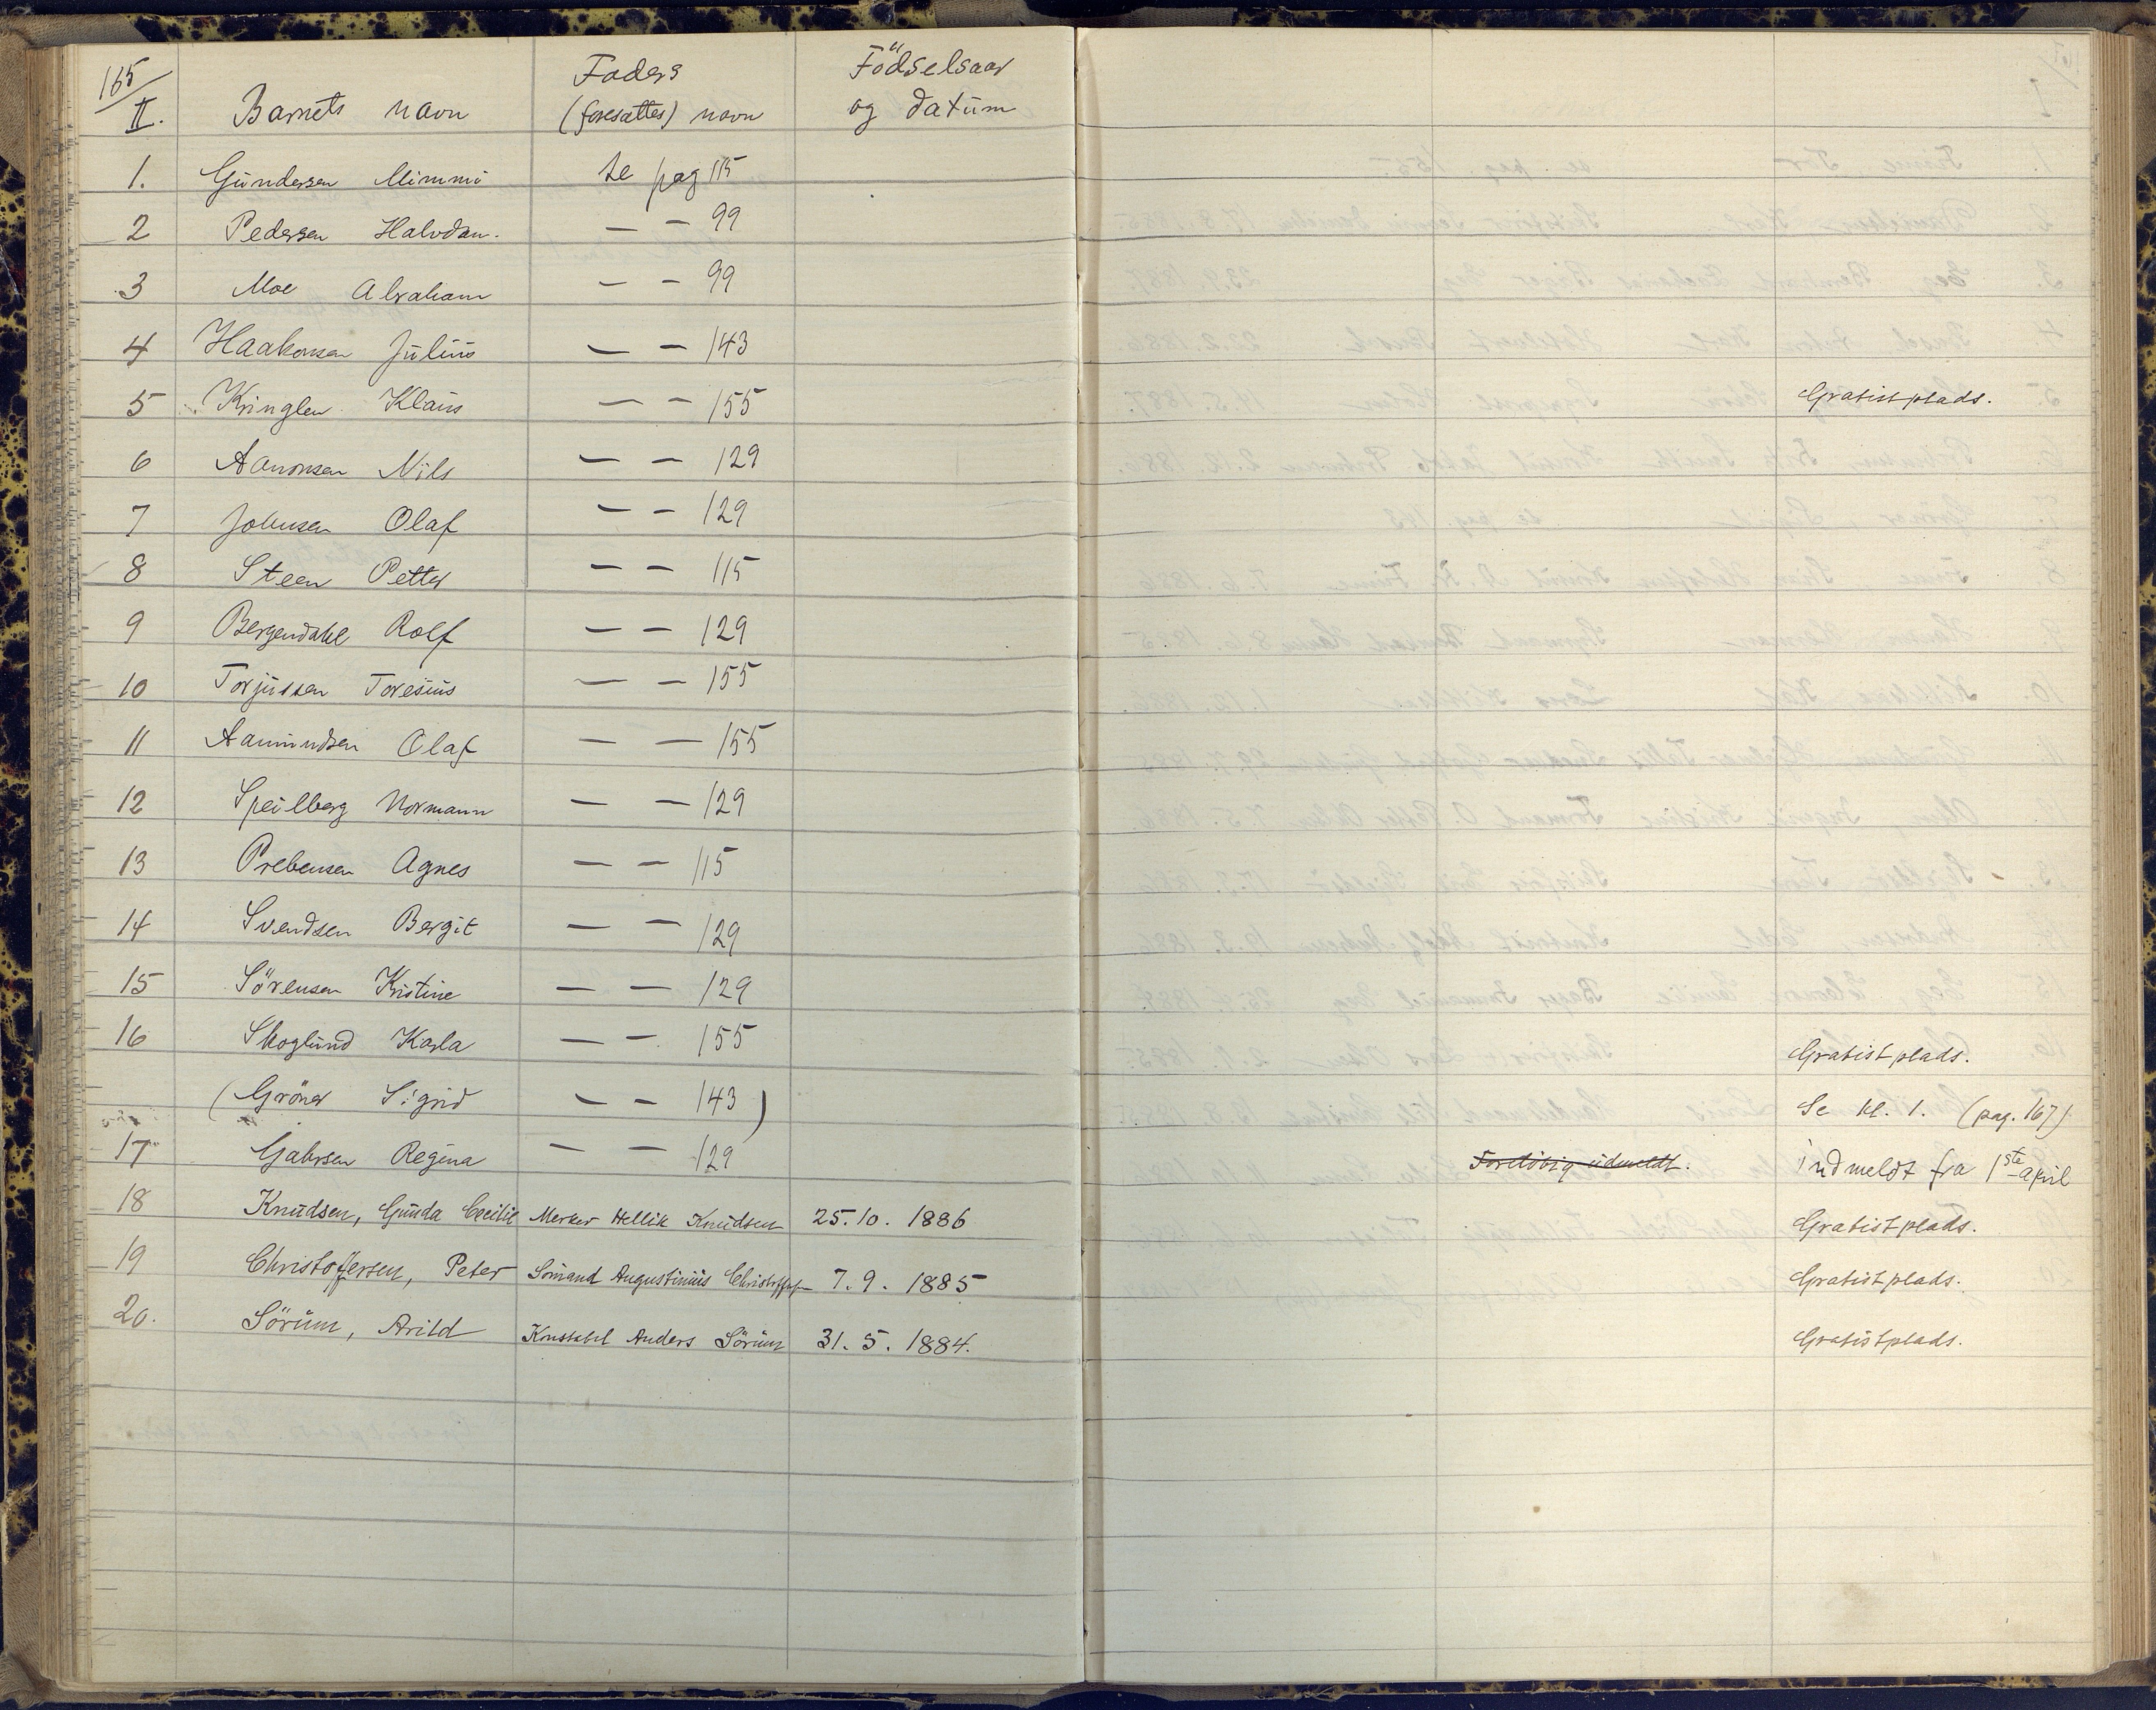 165
II. Barnets navn Faders (foresattes) navn Födselsaar og datum
1. Gundersen Mimmi se pag 115
2 Pedersen Halvdan. — — 99
3 Moe Abraham — — 99
4 Haakonsen Julius — — 143
5 Kringlen Klaus — — 155 Gratistplads.
6 Aanonsen Nils — — 129
7 Johnsen Olaf — — 129
8 Steen Petter — — 115
9 Bergendahl Rolf — — 129
10 Torjussen Toresius — — 155
11 Aamundsen Olaf — — 155
12 Speilberg Normann — — 129
13 Prebensen Agnes — — 115
14 Svendsen Bergit — — 129
15 Sörensen Kristine — — 129
16 Skoglund Karla — — 155 Gratistplads.
(Gröner Sigrid — — 143) Se kl. 1. (pag. 167)
17 Gahrsen Regina — — 129 Foreløbig udmeldt. indmeldt fra 1ste april
18 Knudsen, Gunda Cecilie Merker Hellik Knudsen 25. 10. 1886 Gratistplads.
19 Christoffersen, Peter Sömand Augustinius Christoffersen 7. 9. 1885 Gratistplads.
20. Sörum, Arild Konstabel Anders Sörum 31. 5. 1884. Gratistplads.